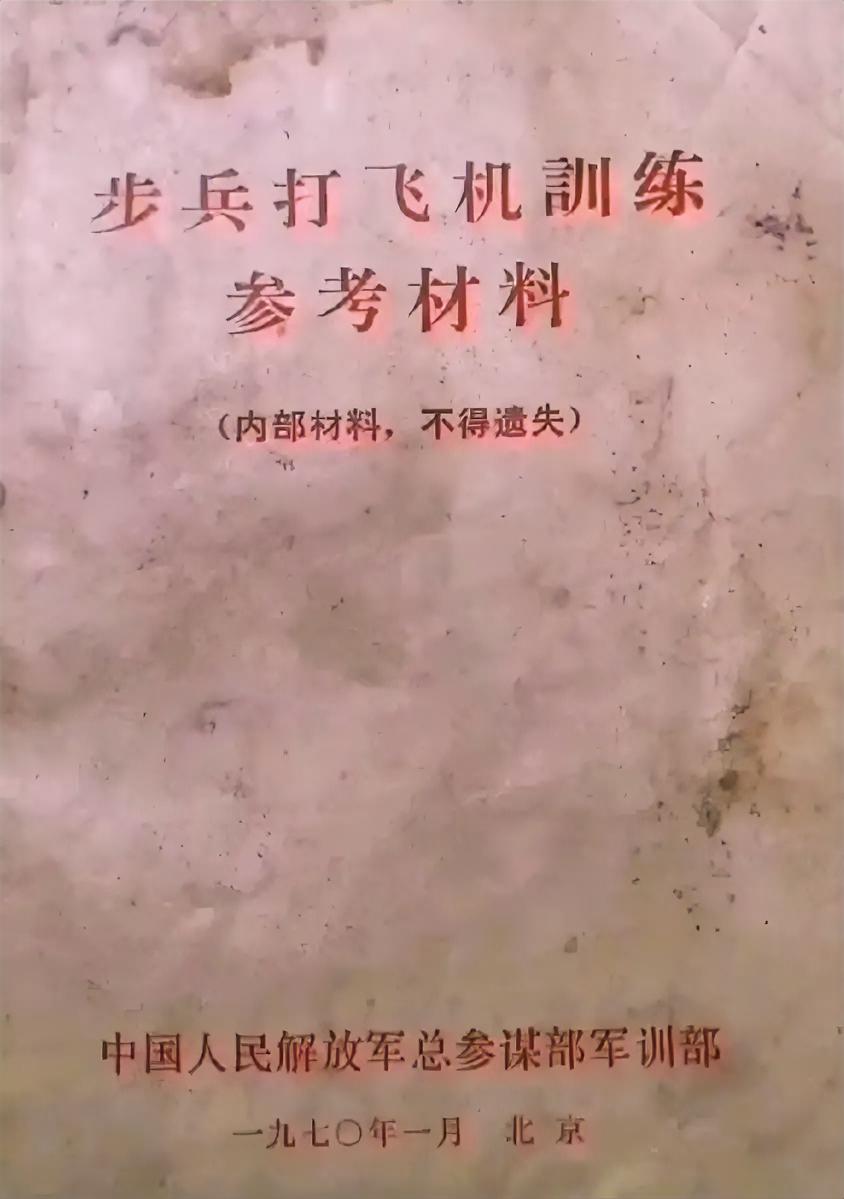 步兵打飞机訓练
参考材料
（内部材料，不得遗失）
中国人民解放军总参谋部军训部
一九七〇年一月 北京